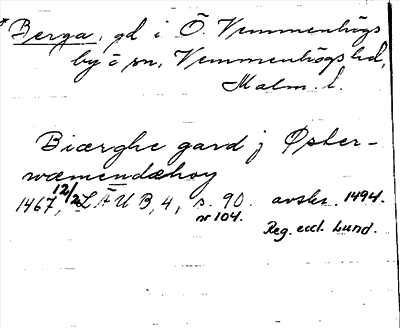 *Berga, gd i Ö. Vemmenhögs
by o sn, Vemmenhögs hd,
Malm. l.
Biærghe gard j Øster-
wæmendæhøy
1467, 12/2 LÄUB, 4, s. 90. avskr. 1494.
nr 104. Reg. eccl. Lund.